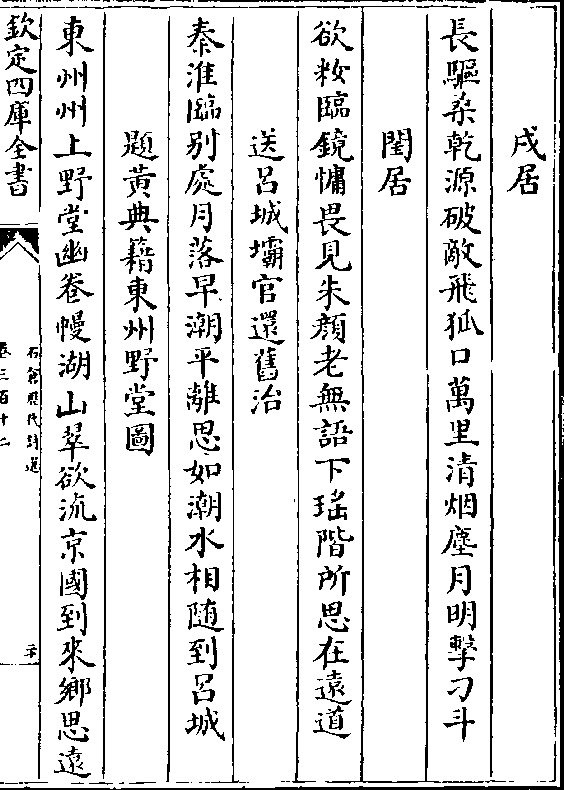 戍居
長驅桑乾源破敵飛狐口萬里清烟塵月明擊刁斗
閨居
欲粧臨鏡慵畏見朱顔老無語下瑤階所思在遠道
送呂城壩官還舊治
秦淮臨别處月落早潮平離思如潮水相随到呂城
題黄典籍東州野堂圖
東州州上野堂幽卷幔湖山翠欲流京國到來鄉思遠
欽定四庫全書
石倉歷代詩選
卷三百十二